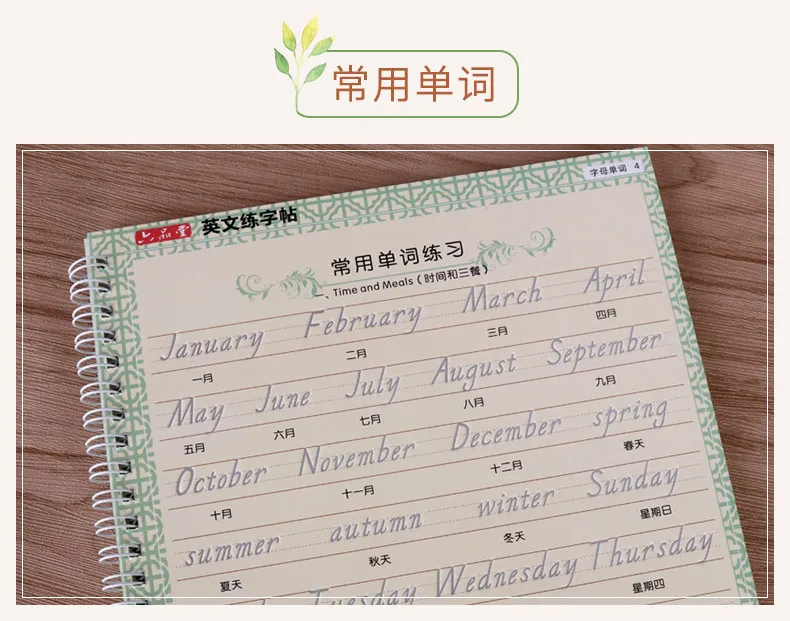 常用单词
字母单词 4
六品堂 英文练字帖
常用单词练习
一、Time and Meals（时间和三餐）
January February March April
一月 二月 三月 四月
May June July August September
五月 六月 七月 八月 九月
October November December spring
十月 十一月 十二月 春天
summer autumn winter Sunday
夏天 秋天 冬天 星期日
Tuesday Wednesday Thursday
星期四